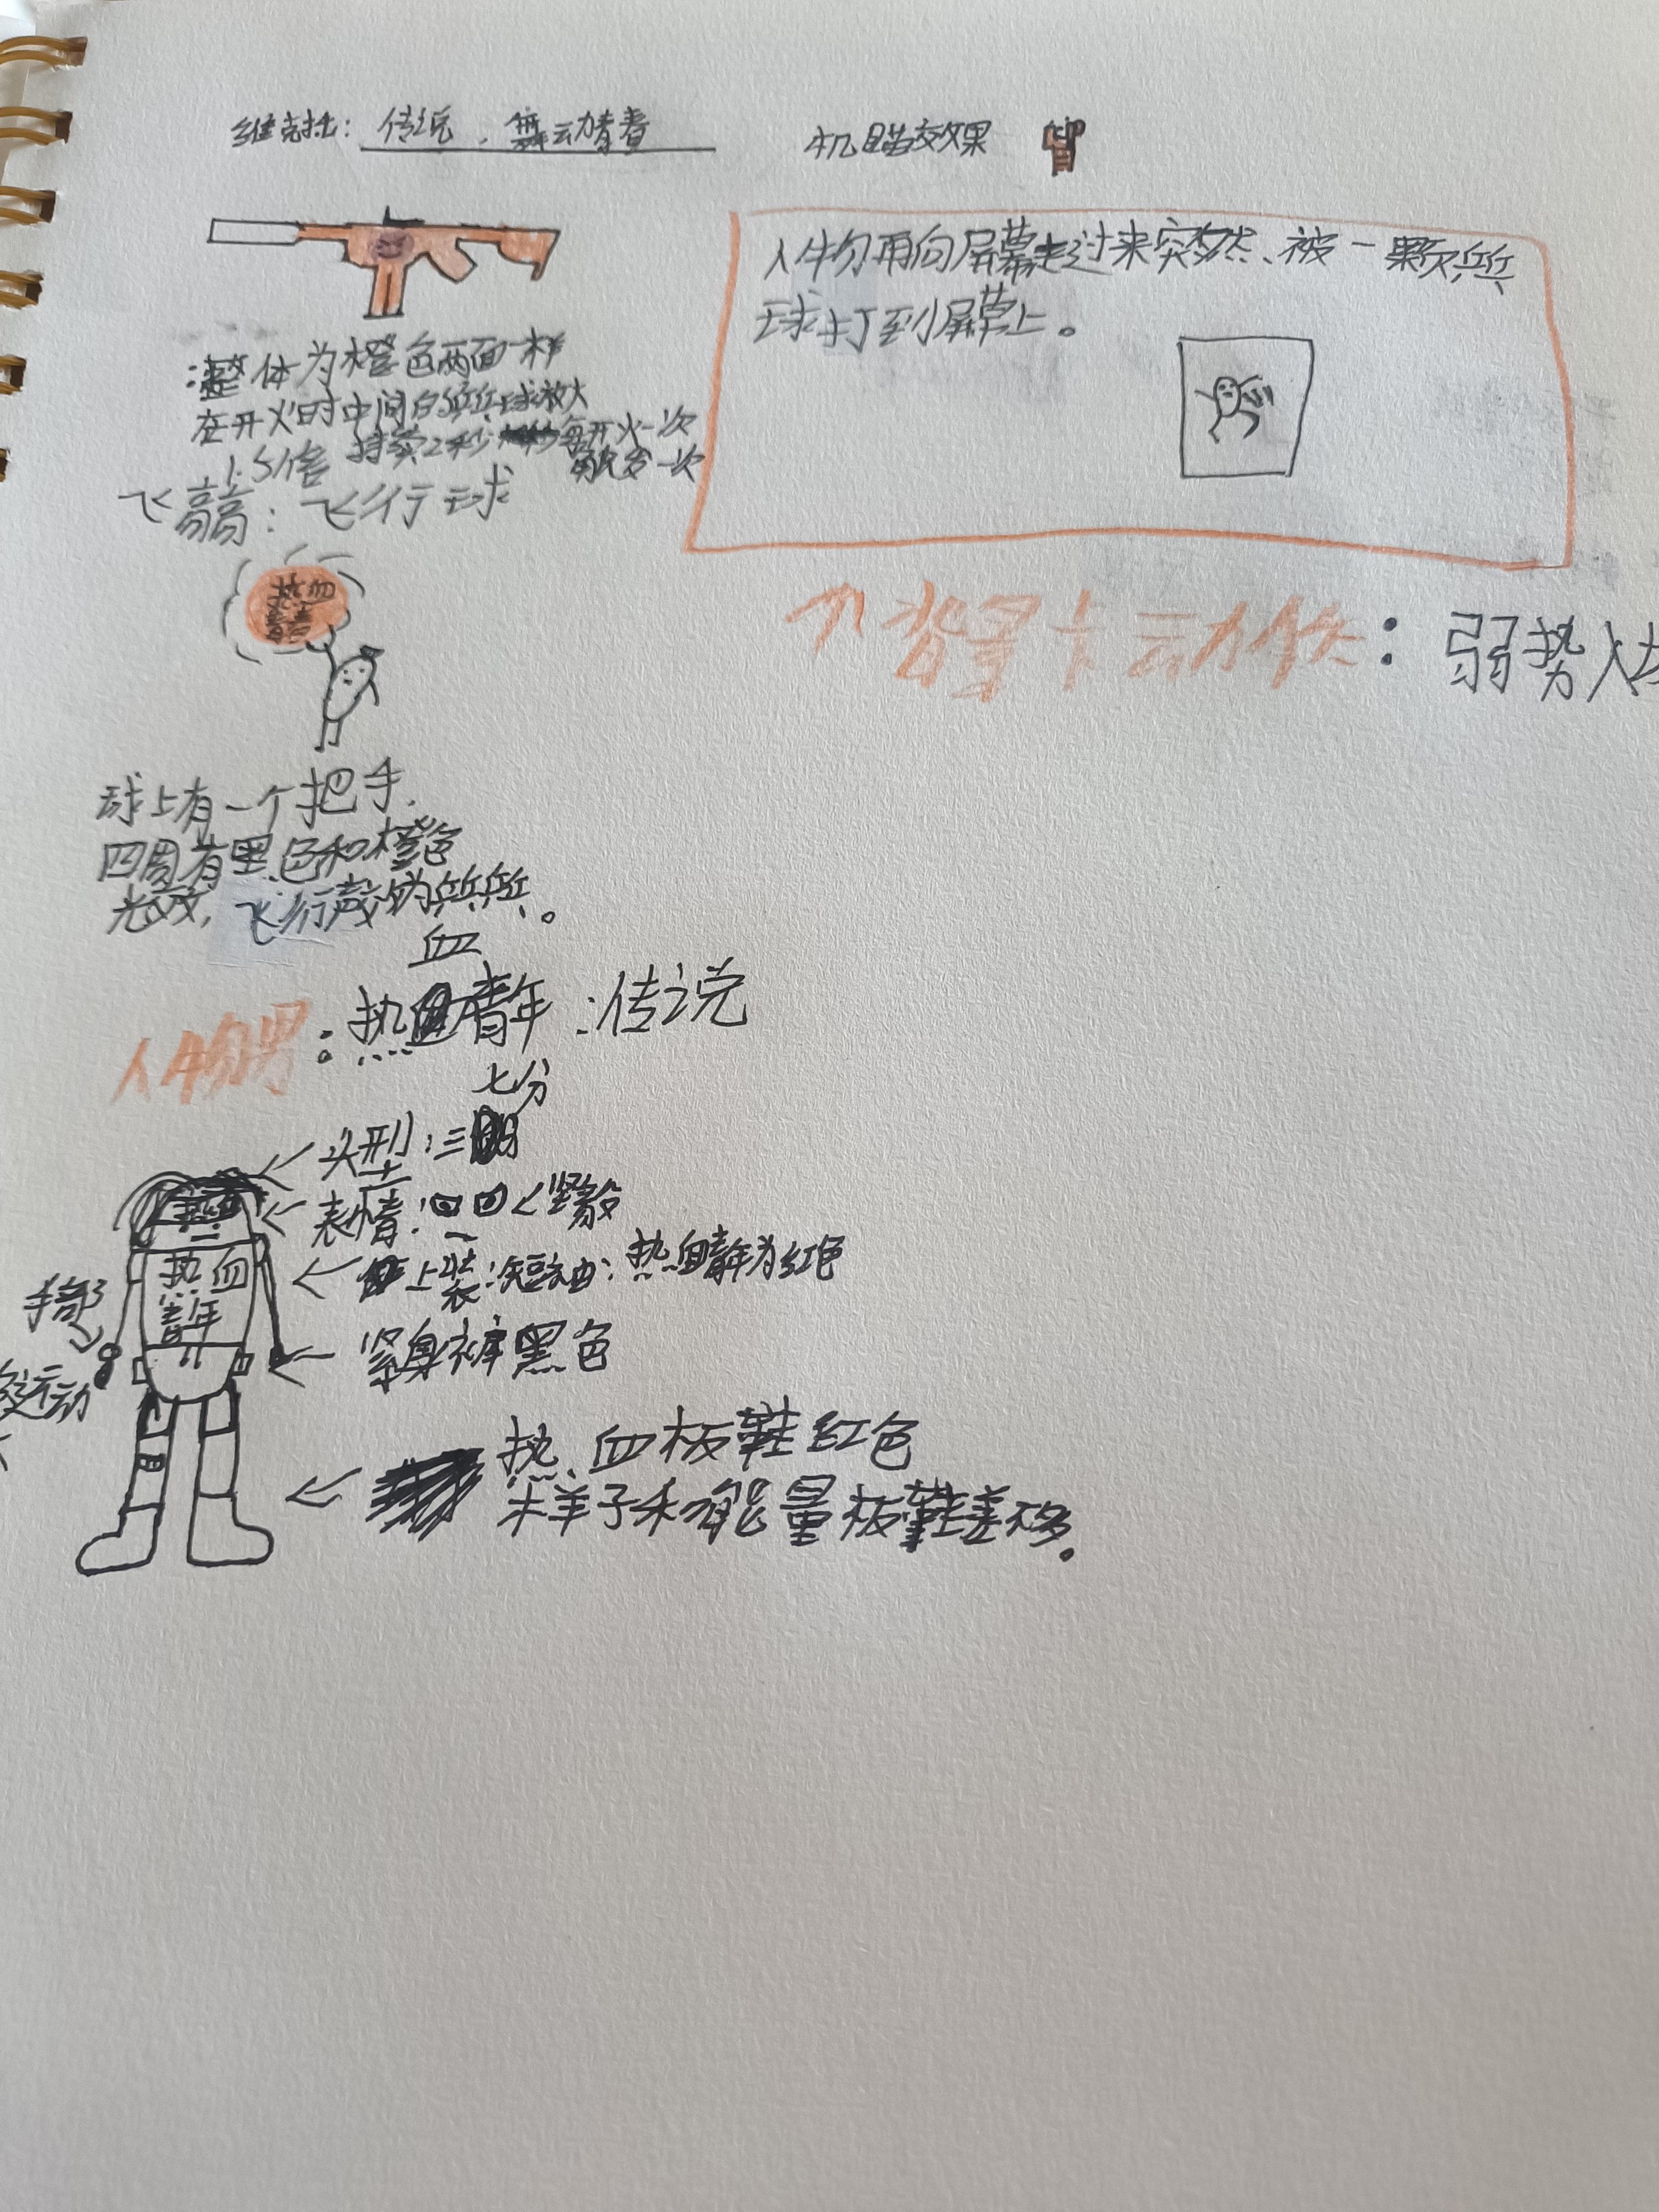 维克托：传说，舞动青春
机瞄效果
整体为橙色两面一样
在开火时中间的乒乓球放大
1.5倍 持续2秒 每开火一次
触发一次
人物再向屏幕走过来突然、被一颗乒乓
球打到屏幕上。
飞高高：飞行球
热血
青年
背景卡动作：弱势入场
球上有一个把手，
四周有黑色和橙色
光效，飞行声为乒乓。
血
人物男：热青年：传说
七分
头型：三
表情： 坚毅
上装：短袖：热血青年为红色
热血
青年
手部
运动
紧身裤黑色
热血板鞋红色
样子和能量板鞋差不多。